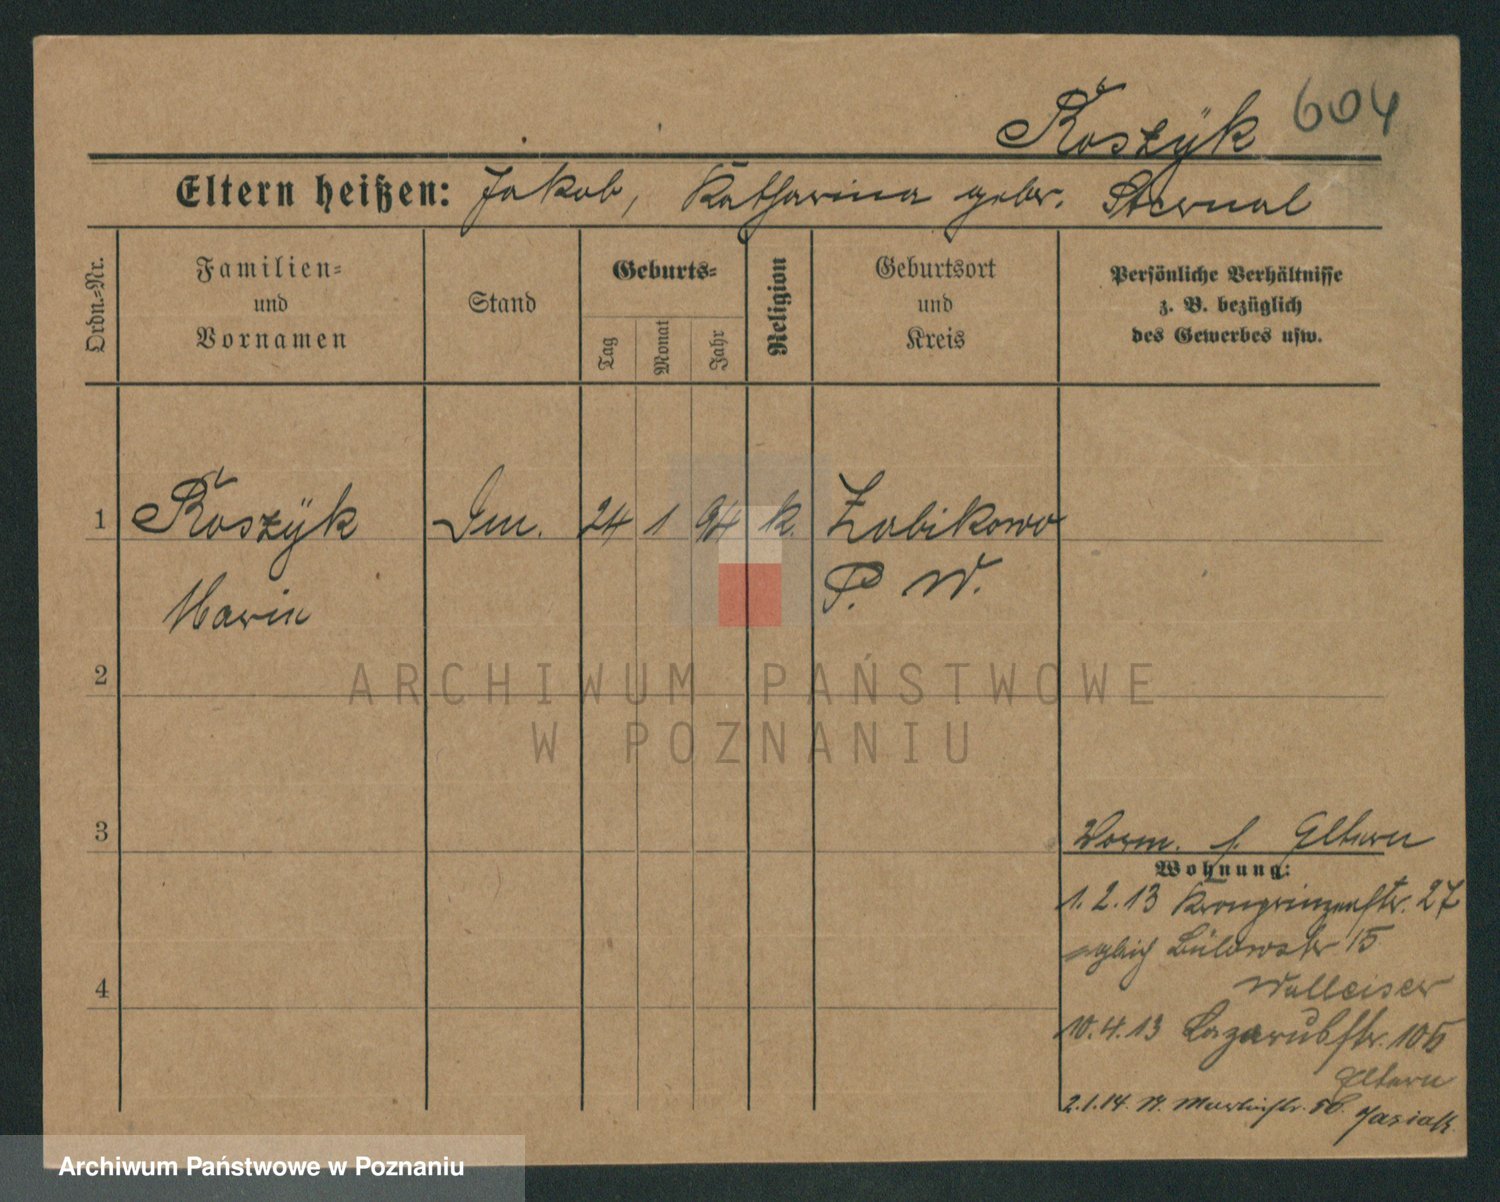 Roszÿk 604
Eltern heißen: Jakob, Katharina gebor. Sternal
Ordn.-Nr.
Familien-
und
Vornamen
Stand
Geburts-
Tag
Monat
Jahr
Religion
Geburtsort
und
Kreis
Persönliche Verhältnisse
z. B. bezüglich
des Gewerbes usw.
1 Roszÿk 24 1 94 k. Zabikowo
Marie P. W.
2
ARCHIWUM PAŃSTWOWE
W POZNANIU
3
Vorm. s. Eltern
Wohnung:
1.2.13 Kronprinzenstr. 27
Bülowstr 15
4
10.4.13 Lazarusstr.
Eltern
2.1.14. Martinstr. Jasiak
Archiwum Państwowe w Poznaniu